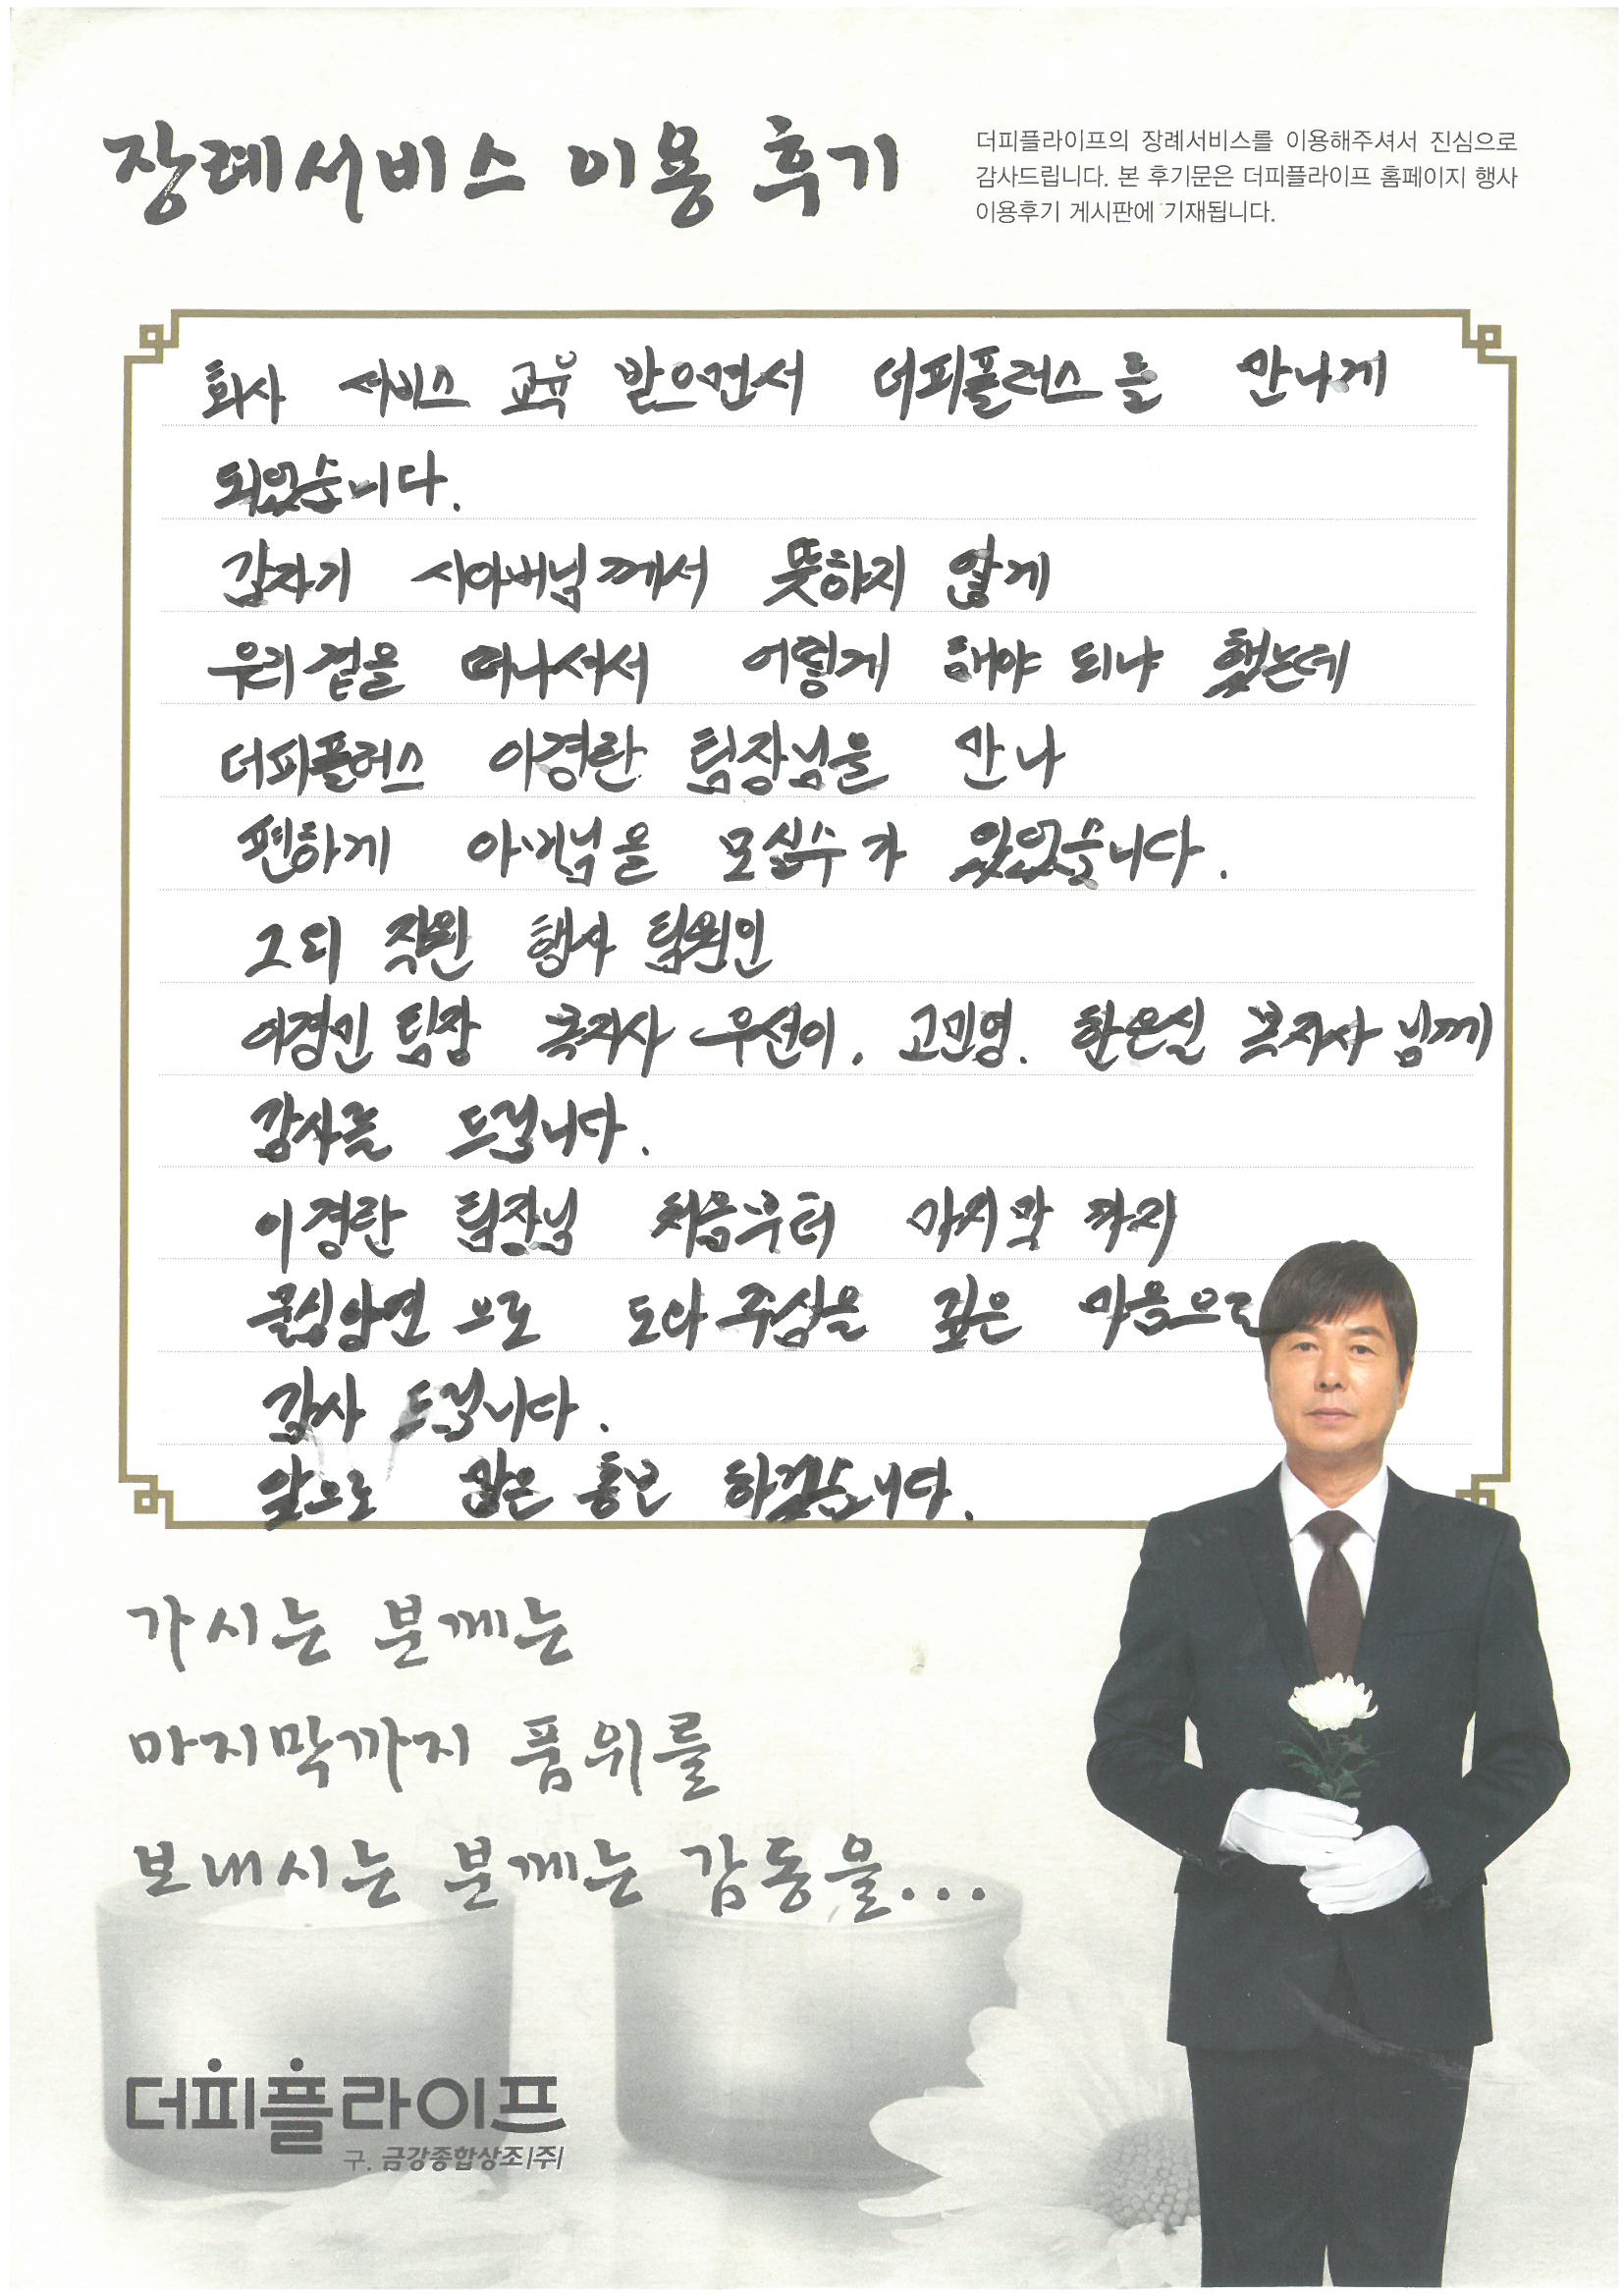 장례서비스 이용 후기
더피플라이프의 장례서비스를 이용해주셔서 진심으로
감사드립니다. 본 후기문은 더피플라이프 홈페이지 행사
이용후기 게시판에 기재됩니다.
회사 서비스 교육 받으면서 더피플러스를 만나게
되었습니다.
갑자기 시아버님께서 뜻하지 않게
우리곁을 떠나셔서 어떻게 해야 되냐 했는데
더피플러스 이경란 팀장님을 만나
편하게 아버님을 모실수가 있었습니다.
그외 직원 행사 팀원인
이경민 팀장 복지사 우선이. 고민영. 한은실 복지사님께
감사를 드립니다.
이경란 팀장님 처음부터 마지막 까지
물심양면 으로 도와주심을 깊은 마음으로
감사 드립니다.
앞으로 많은 홍보 하겠습니다.
가시는 분께는
마지막까지 품위를
보내시는 분께는 감동을...
더피플라이프
구. 금강종합상조(주)